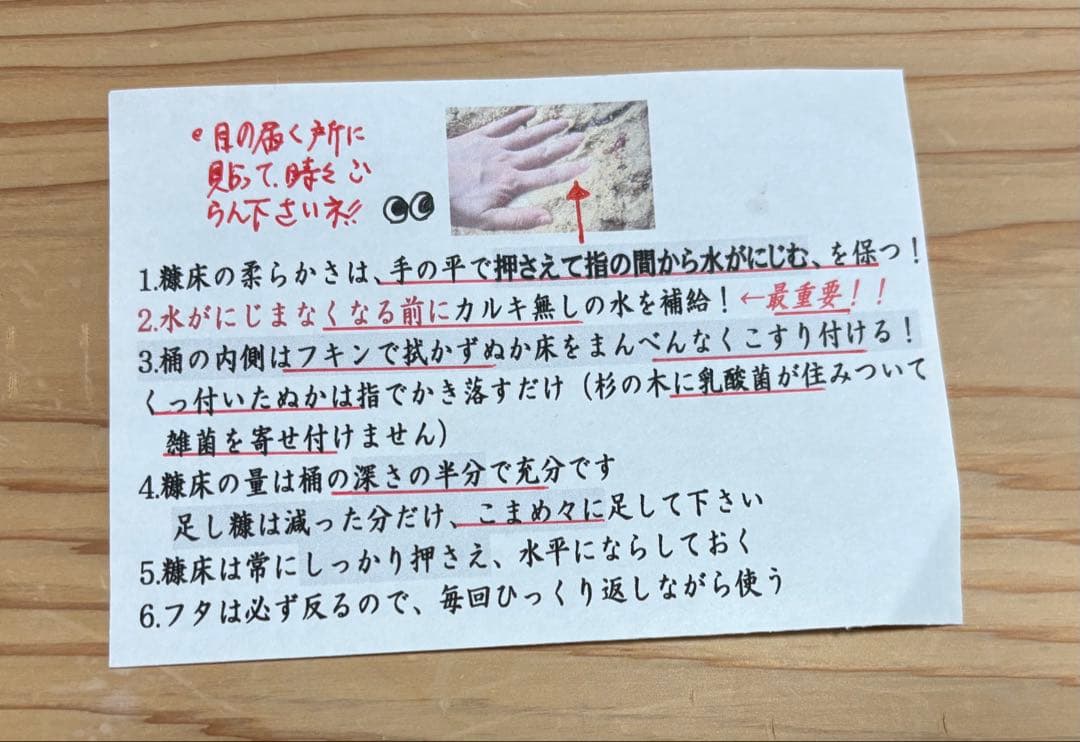 •目の届く所に
貼って、時々ご
らん下さいネ!!
1.糠床の柔らかさは、手の平で押さえて指の間から水がにじむ、を保つ！
2.水がにじまなくなる前にカルキ無しの水を補給！←最重要！！
3.桶の内側はフキンで拭かずぬか床をまんべんなくこすり付ける！
くっ付いたぬかは指でかき落すだけ（杉の木に乳酸菌が住みついて
雑菌を寄せ付けません）
4.糠床の量は桶の深さの半分で充分です
足し糠は減った分だけ、こまめ々に足して下さい
5.糠床は常にしっかり押さえ、水平にならしておく
6.フタは必ず反るので、毎回ひっくり返しながら使う